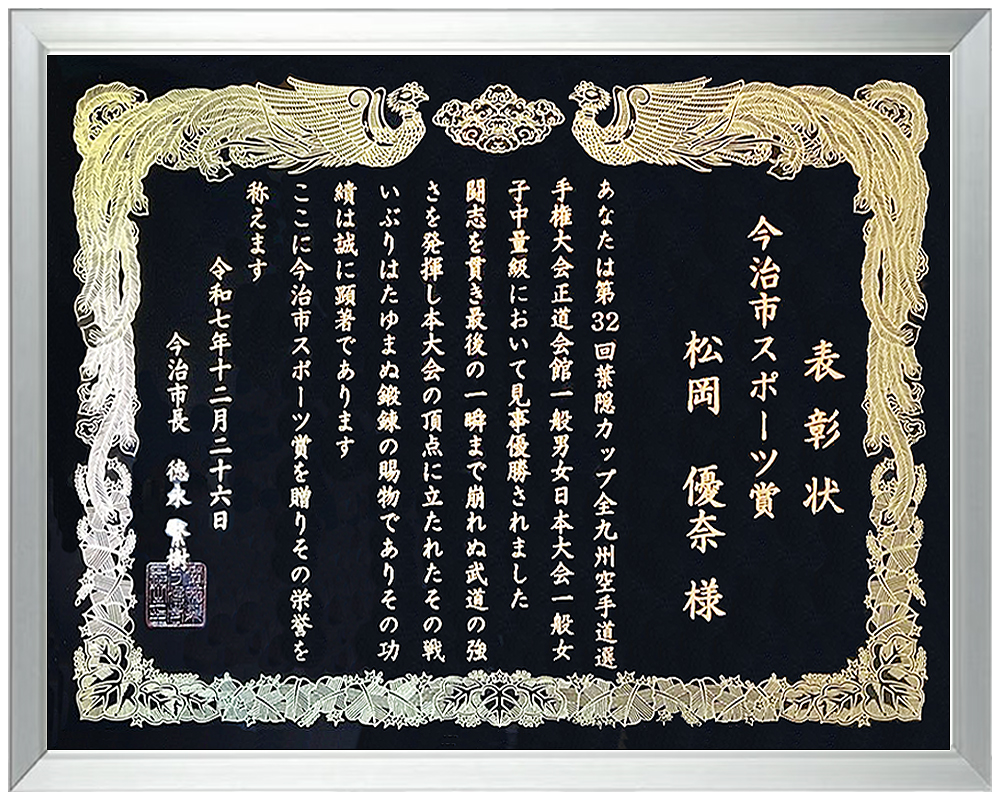 表彰状
今治市スポーツ賞
松岡 優奈 様
あなたは第32回葉隠カップ全九州空手道選
手権大会正道会館一般男女日本大会一般女
子中量級において見事優勝されました
闘志を貫き最後の一瞬まで崩れぬ武道の強
さを発揮し本大会の頂点に立たれたその戦
いぶりはたゆまぬ鍛錬の賜物でありその功
績は誠に顕著であります
ここに今治市スポーツ賞を贈りその栄誉を
称えます
令和七年十二月二十六日
今治市長 徳永 繁樹